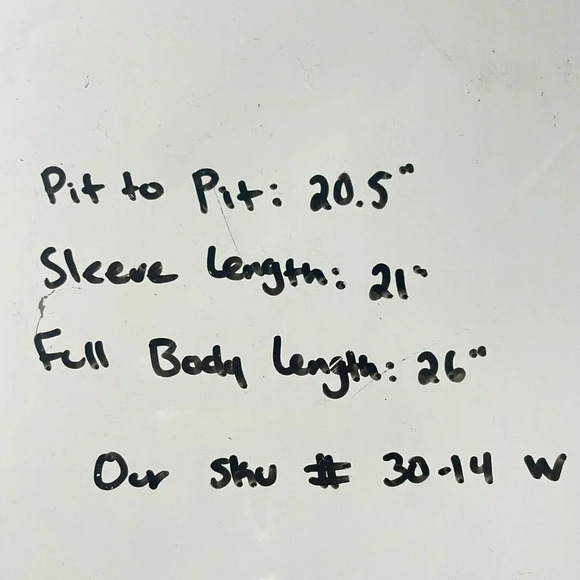 Pit to Pit: 20.5"
Sleeve Length: 21"
Full Body Length: 26"
Our Sku # 30-14 W